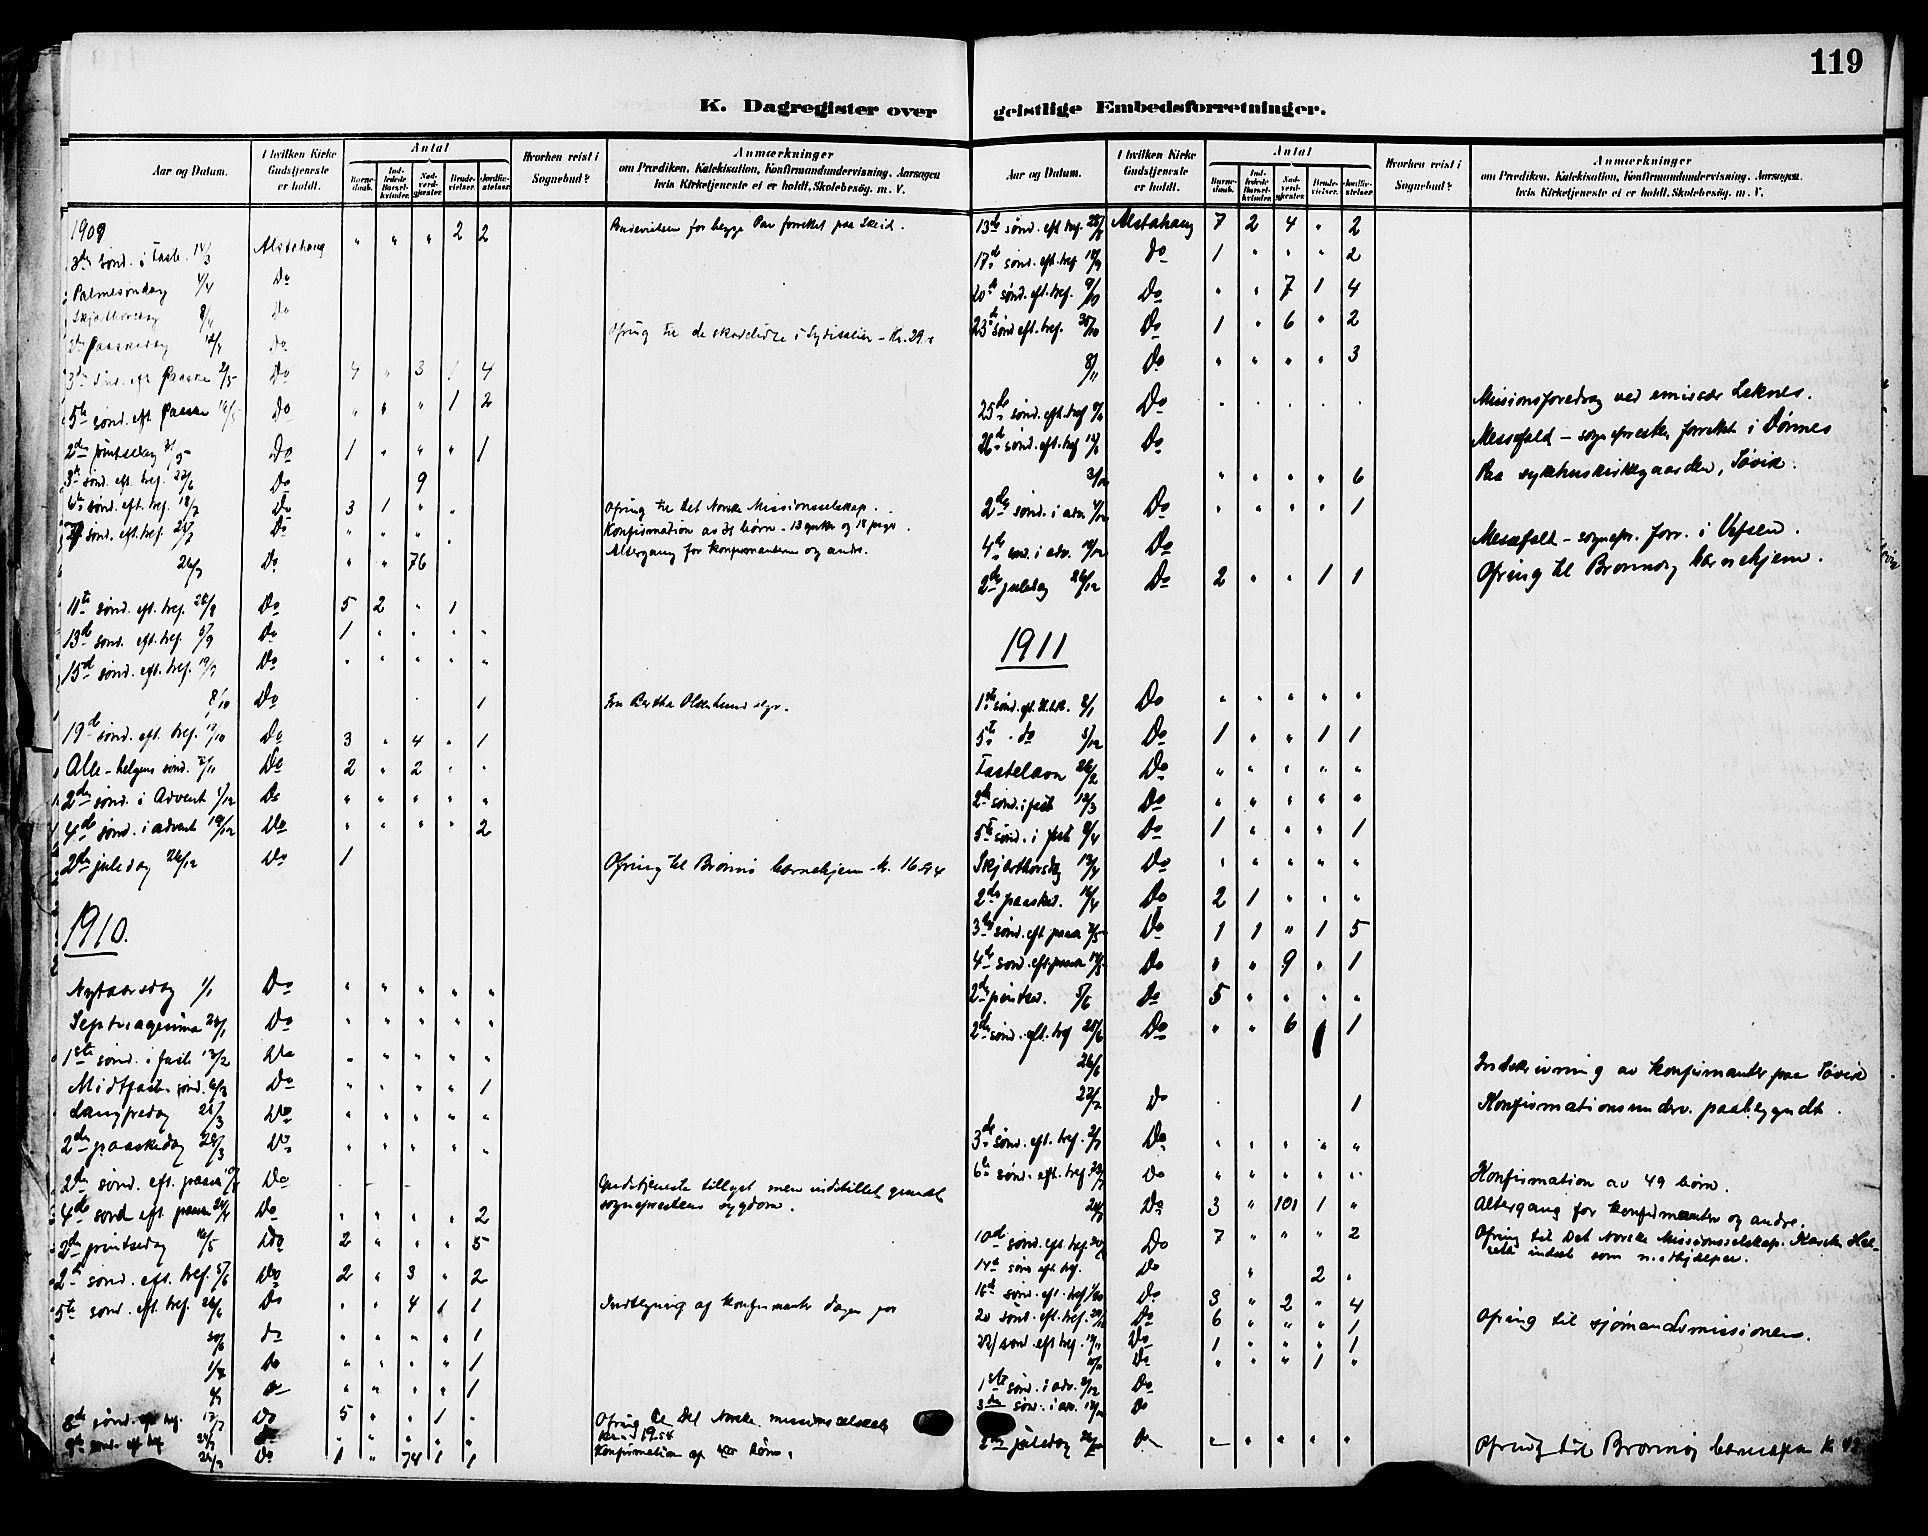 119
K. Dagregister over geistlige Embedsforretninger.
Aar og Datum.
I hvilken Kirke Gudstjeneste er holdt.
Antal
Barnedaab.
Indledede Barselkvinder.
Nadverdgjester.
Brudevielser.
Jordfæstelser.
Hvorhen reist i Sognebud?
Anmærkninger
om Prædiken, Katekisation, Konfirmandundervisning, Aarsagen
hvis Kirketjeneste ei er holdt, Skolebesøg, m. V.
1909
3die sønd. i Faste 14/3 Alstahaug " " " 2 2 for begge Par forrettet paa Skeid.
Palmesøndag 4/4 Do
Skjærtorsdag 8/4 Do
Paaskedag Do Ofring til de skadelidte i Syditalien - Kr. 29.
3die sønd. eft Paaske 2/5 Do 4 " 3 1 4
5te sønd. eft. Paaske 16/5 Do " " " 1 2
2den pintsedag 31/5 Do 1 " " " 1
sønd. eft. tref. Do 9
6te sønd. eft. tref. 18/7 Do 3 1 " " Ofring til Det Norske Missionsselskap.
7de sønd. eft. tref. 25/7 Do " " " Konfirmation av 31 børn - 13 gutter og 18 piger.
26/7 Do " " 76 Altergang for konfirmanterne og andre.
11te sønd. eft. tref. 22/8 Do 5 2 " 1
13de sønd. eft. tref. 5/9 Do 1 " " " "
15de sønd. eft. tref. 19/9 Do " " " " "
8/10 Do 1 Fru Bertha
19de sønd. eft. tref. 17/10 Do 3 " 4 " 1
Alle-helgens sønd. 7/11 Do 2 " 2 " "
2den sønd. i Advent 5/12 Do " " " " "
4de sønd. i advent 19/12 Do " " " " 2
2den juledag 26/12 Do 1 Ofring til Brønnø barnehjem - kr. 16.94
1910.
Nytaarsdag 1/1 Do " " " " "
Septuagesima 23/1 Do " " " " "
1ste sønd. i faste 13/2 Do " " " " "
Midtfaste sønd. 6/3 Do " " " " 1
Langfredag 25/3 Do " " " " "
2den paaskedag 28/3 Do " " " " "
2den sønd. eft. paaske Do Gudstjeneste tillyst men indstillet grundet
sogneprestens sygdom.
4de sønd. eft. paaske 24/4 Do " " " " 2
2den pintsedag 16/5 Do 2 " " " 5
2den sønd. eft. tref. 5/6 Do 2 " 3 " 2
5te sønd. eft. tref. 26/6 Do " " 4 1 1 Indtegning af konfirmanter dagen før
30/6 Do " " " " 1
Do " " " " 1
Do " " " " 1
8de sønd. eft. tref. 17/7 Do 5 " " 1 " Ofring til Det Norske missionsselskab
9de sønd. eft. tref. 24/7 Do " " " "
Do 1 " 74 1 1 Konfirmation af børn.
Aar og Datum.
I hvilken Kirke Gudstjeneste er holdt.
Antal
Barnedaab.
Indledede Barselkvinder.
Nadverdgjester.
Brudevielser.
Jordfæstelser.
Hvorhen reist i Sognebud?
Anmærkninger
om Prædiken, Katekisation, Konfirmandundervisning, Aarsagen
hvis Kirketjeneste ei er holdt, Skolebesøg, m. V.
13de sønd. eft tref. Alstahaug 7 2 4 " 2
17de sønd. eft. tref. 18/9 Do 1 " " " 2
20de sønd. eft. tref. 9/10 Do " " 7 1 4
23de sønd eft. tref. 30/10 Do 1 " 6 " 2
8/11 Do " " " " 3
25de sønd. eft. tref Do Missionsforedrag ved emissær Leknes.
26de sønd. eft. tref Do Messefald - sognepresten forrettet i Dønnes
" " " " 6 Paa sykehuskirkegaarden, Søvik.
2den sønd. i adv. 4/12 Do " " " " 1
4de søn. i adv. 18/12 Do Messefald - sognepr. forr. i Vefsen.
2den juledag 26/12 Do 2 " " 1 1 Ofring til Brønnøy barnehjem.
1911
1ste sønd. eft. H.t.K. 8/1 Do " " " " "
5te do 5/2 Do 1 " " 1 1
Fastelavn 26/2 Do " " " " "
2den sønd. i faste 12/3 Do " " " " "
5te sønd. i faste 2/4 Do 1 " " " 1
Skjærthorsdag 13/4 Do " " " "
2den paasked. 17/4 Do 2 1 " " "
3die sønd. eft. paaske 7/5 Do 1 1 " 1 5
4de sønd. eft. paaske 14/5 Do " " 9 " 1
2den pintsed. 5/6 Do 5 " " " "
2den sønd. eft. tref 25/6 Do " " 6 1 1
26/6 Indskrivning av konfirmanter paa Søvik
Do 1 Konfirmationsunderv. paabegyndt.
3die sønd. eft. tref. 2/7 Do " " " " "
6te sønd. eft. tref. 23/7 Do " " " " " Konfirmation av 49 børn.
Do 3 " 101 1 " Altergang for konfirmanter og andre.
10de sønd. eft. tref. Do 7 " " " 2 Ofring til Det Norske Missionsselskap.
indsat som medhjælper.
14de søn eft tref. Do " 2 "
16de sønd. eft. tref. 1/10 Do 3 " 2 " 4
20 sønd. eft. tref. 29/10 Do 6 " " " 1 Ofring til sjømandsmissionen.
22/ sønd. eft tref. Do 1 " " " 1
Do " " " 1 "
1ste sønd. i adv. Do
3die sønd. i adv. 17/12 Do
2den juledag 26/12 Do " " " " Ofring til Brønnøy